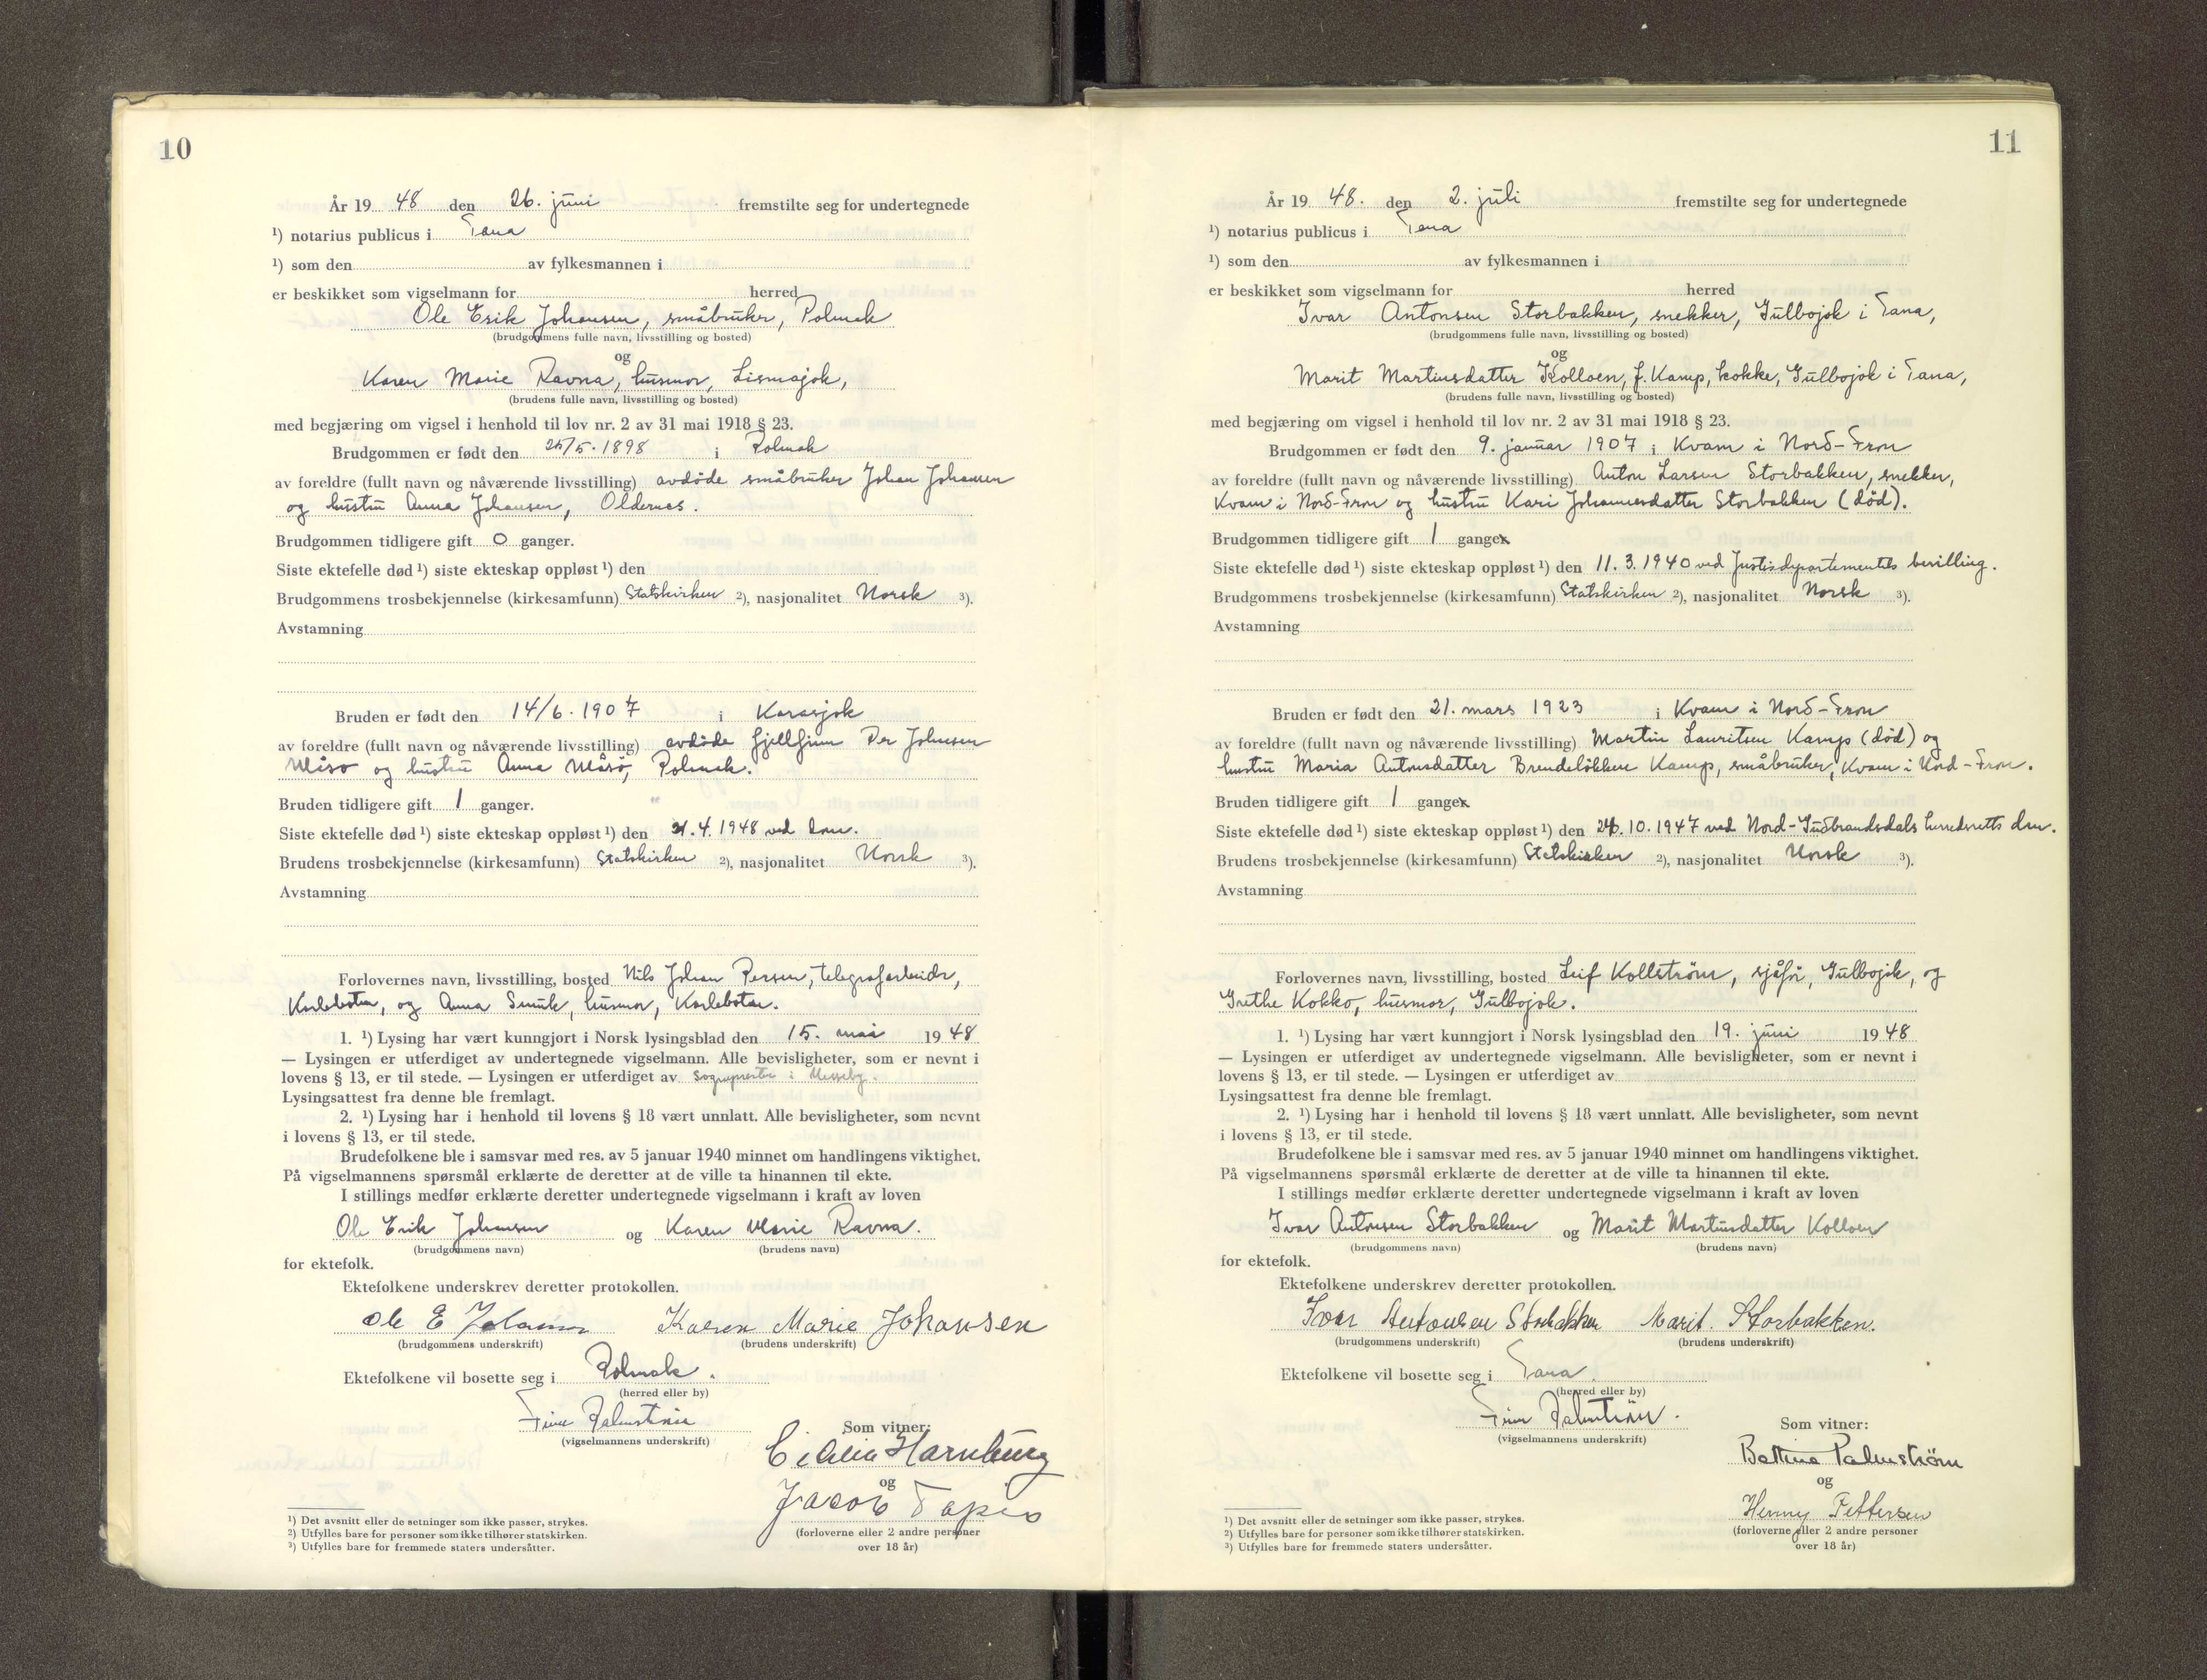 10
År 19 48 den 26. juni fremstilte seg for undertegnede
¹) notarius publicus i Tana
¹) som den av fylkesmannen i
er beskikket som vigselmann for herred
Ole Erik Johansen, småbruker, Polmak
(brudgommens fulle navn, livsstilling og bosted)
og
Karen Marie Ravna, husmor, Lismajok,
(brudens fulle navn, livsstilling og bosted)
med begjæring om vigsel i henhold til lov nr. 2 av 31 mai 1918 § 23.
Brudgommen er født den 25/5. 1898 i Polmak
av foreldre (fullt navn og nåværende livsstilling) avdøde småbruker Johan Johansen
og hustru Anna Johansen, Oldernes.
Brudgommen tidligere gift 0 ganger.
Siste ektefelle død ¹) siste ekteskap oppløst ¹) den
Brudgommens trosbekjennelse (kirkesamfunn) Statskirken ²), nasjonalitet Norsk ³).
Avstamning
Bruden er født den 14/6. 1907 i Karasjok
av foreldre (fullt navn og nåværende livsstilling) avdøde fjellfinn Per Johnsen
Måsø og hustru Anna Måsø, Polmak.
Bruden tidligere gift 1 ganger.
Siste ektefelle død ¹) siste ekteskap oppløst ¹) den 21.4.1948 ved dom.
Brudens trosbekjennelse (kirkesamfunn) Statskirken ²), nasjonalitet Norsk ³).
Avstamning
Forlovernes navn, livsstilling, bosted Nils Johan Persen, telegrafarbeider,
Karlebotn, og Anna Smuk, husmor, Karlebotn.
1. ¹) Lysing har vært kunngjort i Norsk lysingsblad den 15. mai 19 48
— Lysingen er utferdiget av undertegnede vigselmann. Alle bevisligheter, som er nevnt i
lovens § 13, er til stede. — Lysingen er utferdiget av sogneprester i Nesseby.
Lysingsattest fra denne ble fremlagt.
2. ¹) Lysing har i henhold til lovens § 18 vært unnlatt. Alle bevisligheter, som nevnt
i lovens § 13, er til stede.
Brudefolkene ble i samsvar med res. av 5 januar 1940 minnet om handlingens viktighet.
På vigselmannens spørsmål erklærte de deretter at de ville ta hinannen til ekte.
I stillings medfør erklærte deretter undertegnede vigselmann i kraft av loven
Ole Erik Johansen og Karen Marie Ravna.
(brudgommens navn) (brudens navn)
for ektefolk.
Ektefolkene underskrev deretter protokollen.
Ole E Johansen Karen Marie Johansen
(brudgommens underskrift) (brudens underskrift)
Ektefolkene vil bosette seg i Polmak.
(herred eller by)
Finn Palmström
(vigselmannens underskrift)
Som vitner:
Harnburg
og
Jacob
(forloverne eller 2 andre personer
over 18 år)
¹) Det avsnitt eller de setninger som ikke passer, strykes.
²) Utfylles bare for personer som ikke tilhører statskirken.
³) Utfylles bare for fremmede staters undersåtter.
11
År 19 48. den 2. juli fremstilte seg for undertegnede
¹) notarius publicus i Tana
¹) som den av fylkesmannen i
er beskikket som vigselmann for herred
Ivar Antonsen Storbakken, snekker, Gulbojok i Tana,
(brudgommens fulle navn, livsstilling og bosted)
og
Marit Martinsdatter Kolloen, f. Kamp, kokke, Gulbojok i Tana,
(brudens fulle navn, livsstilling og bosted)
med begjæring om vigsel i henhold til lov nr. 2 av 31 mai 1918 § 23.
Brudgommen er født den 9. januar 1907 i Kvam i Nord-Fron
av foreldre (fullt navn og nåværende livsstilling) Anton Larsen Storbakken, snekker,
Kvam i Nord-Fron og hustru Kari Johannesdatter Storbakken (død).
Brudgommen tidligere gift 1 ganger
Siste ektefelle død ¹) siste ekteskap oppløst ¹) den 11.3.1940 ved Justisdepartementets bevilling.
Brudgommens trosbekjennelse (kirkesamfunn) Statskirken ²), nasjonalitet Norsk ³).
Avstamning
Bruden er født den 21. mars 1923 i Kvam i Nord-Fron
av foreldre (fullt navn og nåværende livsstilling) Martin Lauritsen Kamp (død) og
hustru Maria Antonsdatter Brendeløkken Kamp, småbruker, Kvam i Nord-Fron.
Bruden tidligere gift 1 ganger
Siste ektefelle død ¹) siste ekteskap oppløst ¹) den 24.10.1947 ved Nord-Gudbrandsdals herredsretts dom.
Brudens trosbekjennelse (kirkesamfunn) Statskirken ²), nasjonalitet Norsk ³).
Avstamning
Forlovernes navn, livsstilling, bosted Leif Kollström, sjåfør, Gulbojok, og
Grethe Kokko, husmor, Gulbojok.
1. ¹) Lysing har vært kunngjort i Norsk lysingsblad den 19. juni 19 48
— Lysingen er utferdiget av undertegnede vigselmann. Alle bevisligheter, som er nevnt i
lovens § 13, er til stede. — Lysingen er utferdiget av
Lysingsattest fra denne ble fremlagt.
2. ¹) Lysing har i henhold til lovens § 18 vært unnlatt. Alle bevisligheter, som nevnt
i lovens § 13, er til stede.
Brudefolkene ble i samsvar med res. av 5 januar 1940 minnet om handlingens viktighet.
På vigselmannens spørsmål erklærte de deretter at de ville ta hinannen til ekte.
I stillings medfør erklærte deretter undertegnede vigselmann i kraft av loven
Ivar Antonsen Storbakken og Marit Martinsdatter Kolloen
(brudgommens navn) (brudens navn)
for ektefolk.
Ektefolkene underskrev deretter protokollen.
Ivar Antonsen Storbakken Marit. Storbakken.
(brudgommens underskrift) (brudens underskrift)
Ektefolkene vil bosette seg i Tana.
(herred eller by)
Finn Palmström.
(vigselmannens underskrift)
Som vitner:
Bettina Palmström
og
Henny Pettersen
(forloverne eller 2 andre personer
over 18 år)
¹) Det avsnitt eller de setninger som ikke passer, strykes.
²) Utfylles bare for personer som ikke tilhører statskirken.
³) Utfylles bare for fremmede staters undersåtter.